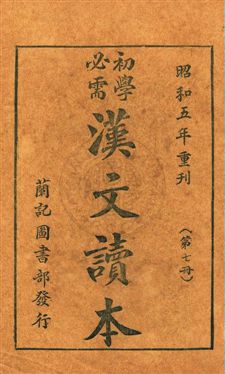 昭和五年重刊
(第七冊)
初學
必需
漢文讀本
蘭記圖書部發行